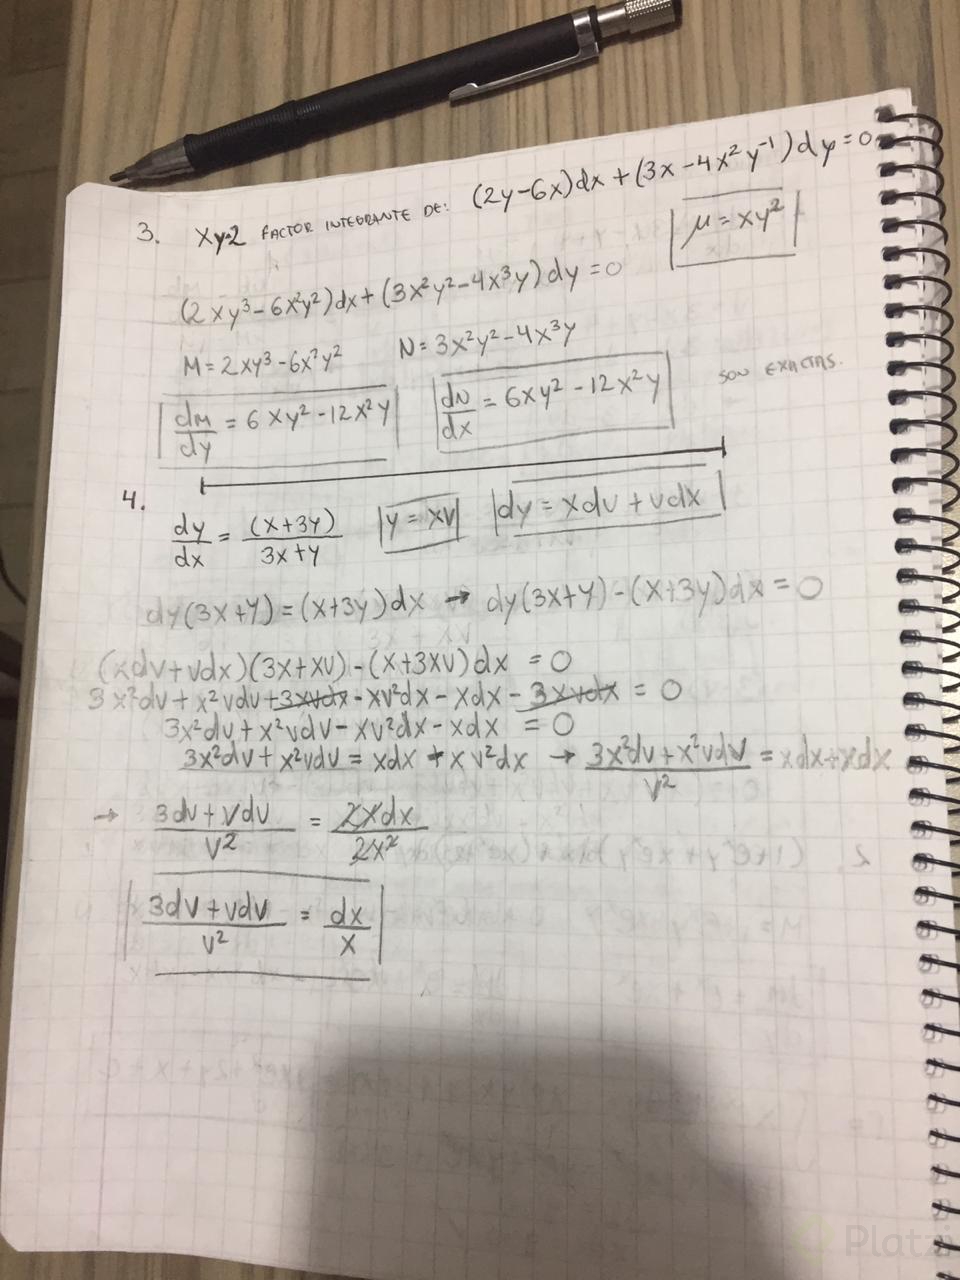 3. xy^2 FACTOR INTEGRANTE DE: (2y-6x)dx+(3x-4x²y⁻¹)dy=0
μ=xy²
(2xy³-6x²y²)dx+(3x²y²-4x³y)dy=0
M=2xy³-6x²y² N=3x²y²-4x³y
dM/dy = 6xy²-12x²y dN/dx = 6xy²-12x²y SON EXACTAS.
4.
dy/dx = (x+3y)/3x+y y=xv dy=xdv+vdx
dy(3x+y)=(x+3y)dx → dy(3x+y)-(x+3y)dx=0
(xdv+vdx)(3x+xv)-(x+3xv)dx=0
3x²dv+x²vdv+3xvdx-xv²dx-xdx-3xvdx=0
3x²dv+x²vdv-xv²dx-xdx=0
3x²dv+x²vdv=xdx+xv²dx → 3x²dv+x²vdv/v² = xdx+xdx
→ 3dv+vdv/v² = 2xdx/2x²
3dv+vdv/v² = dx/x
Platzi